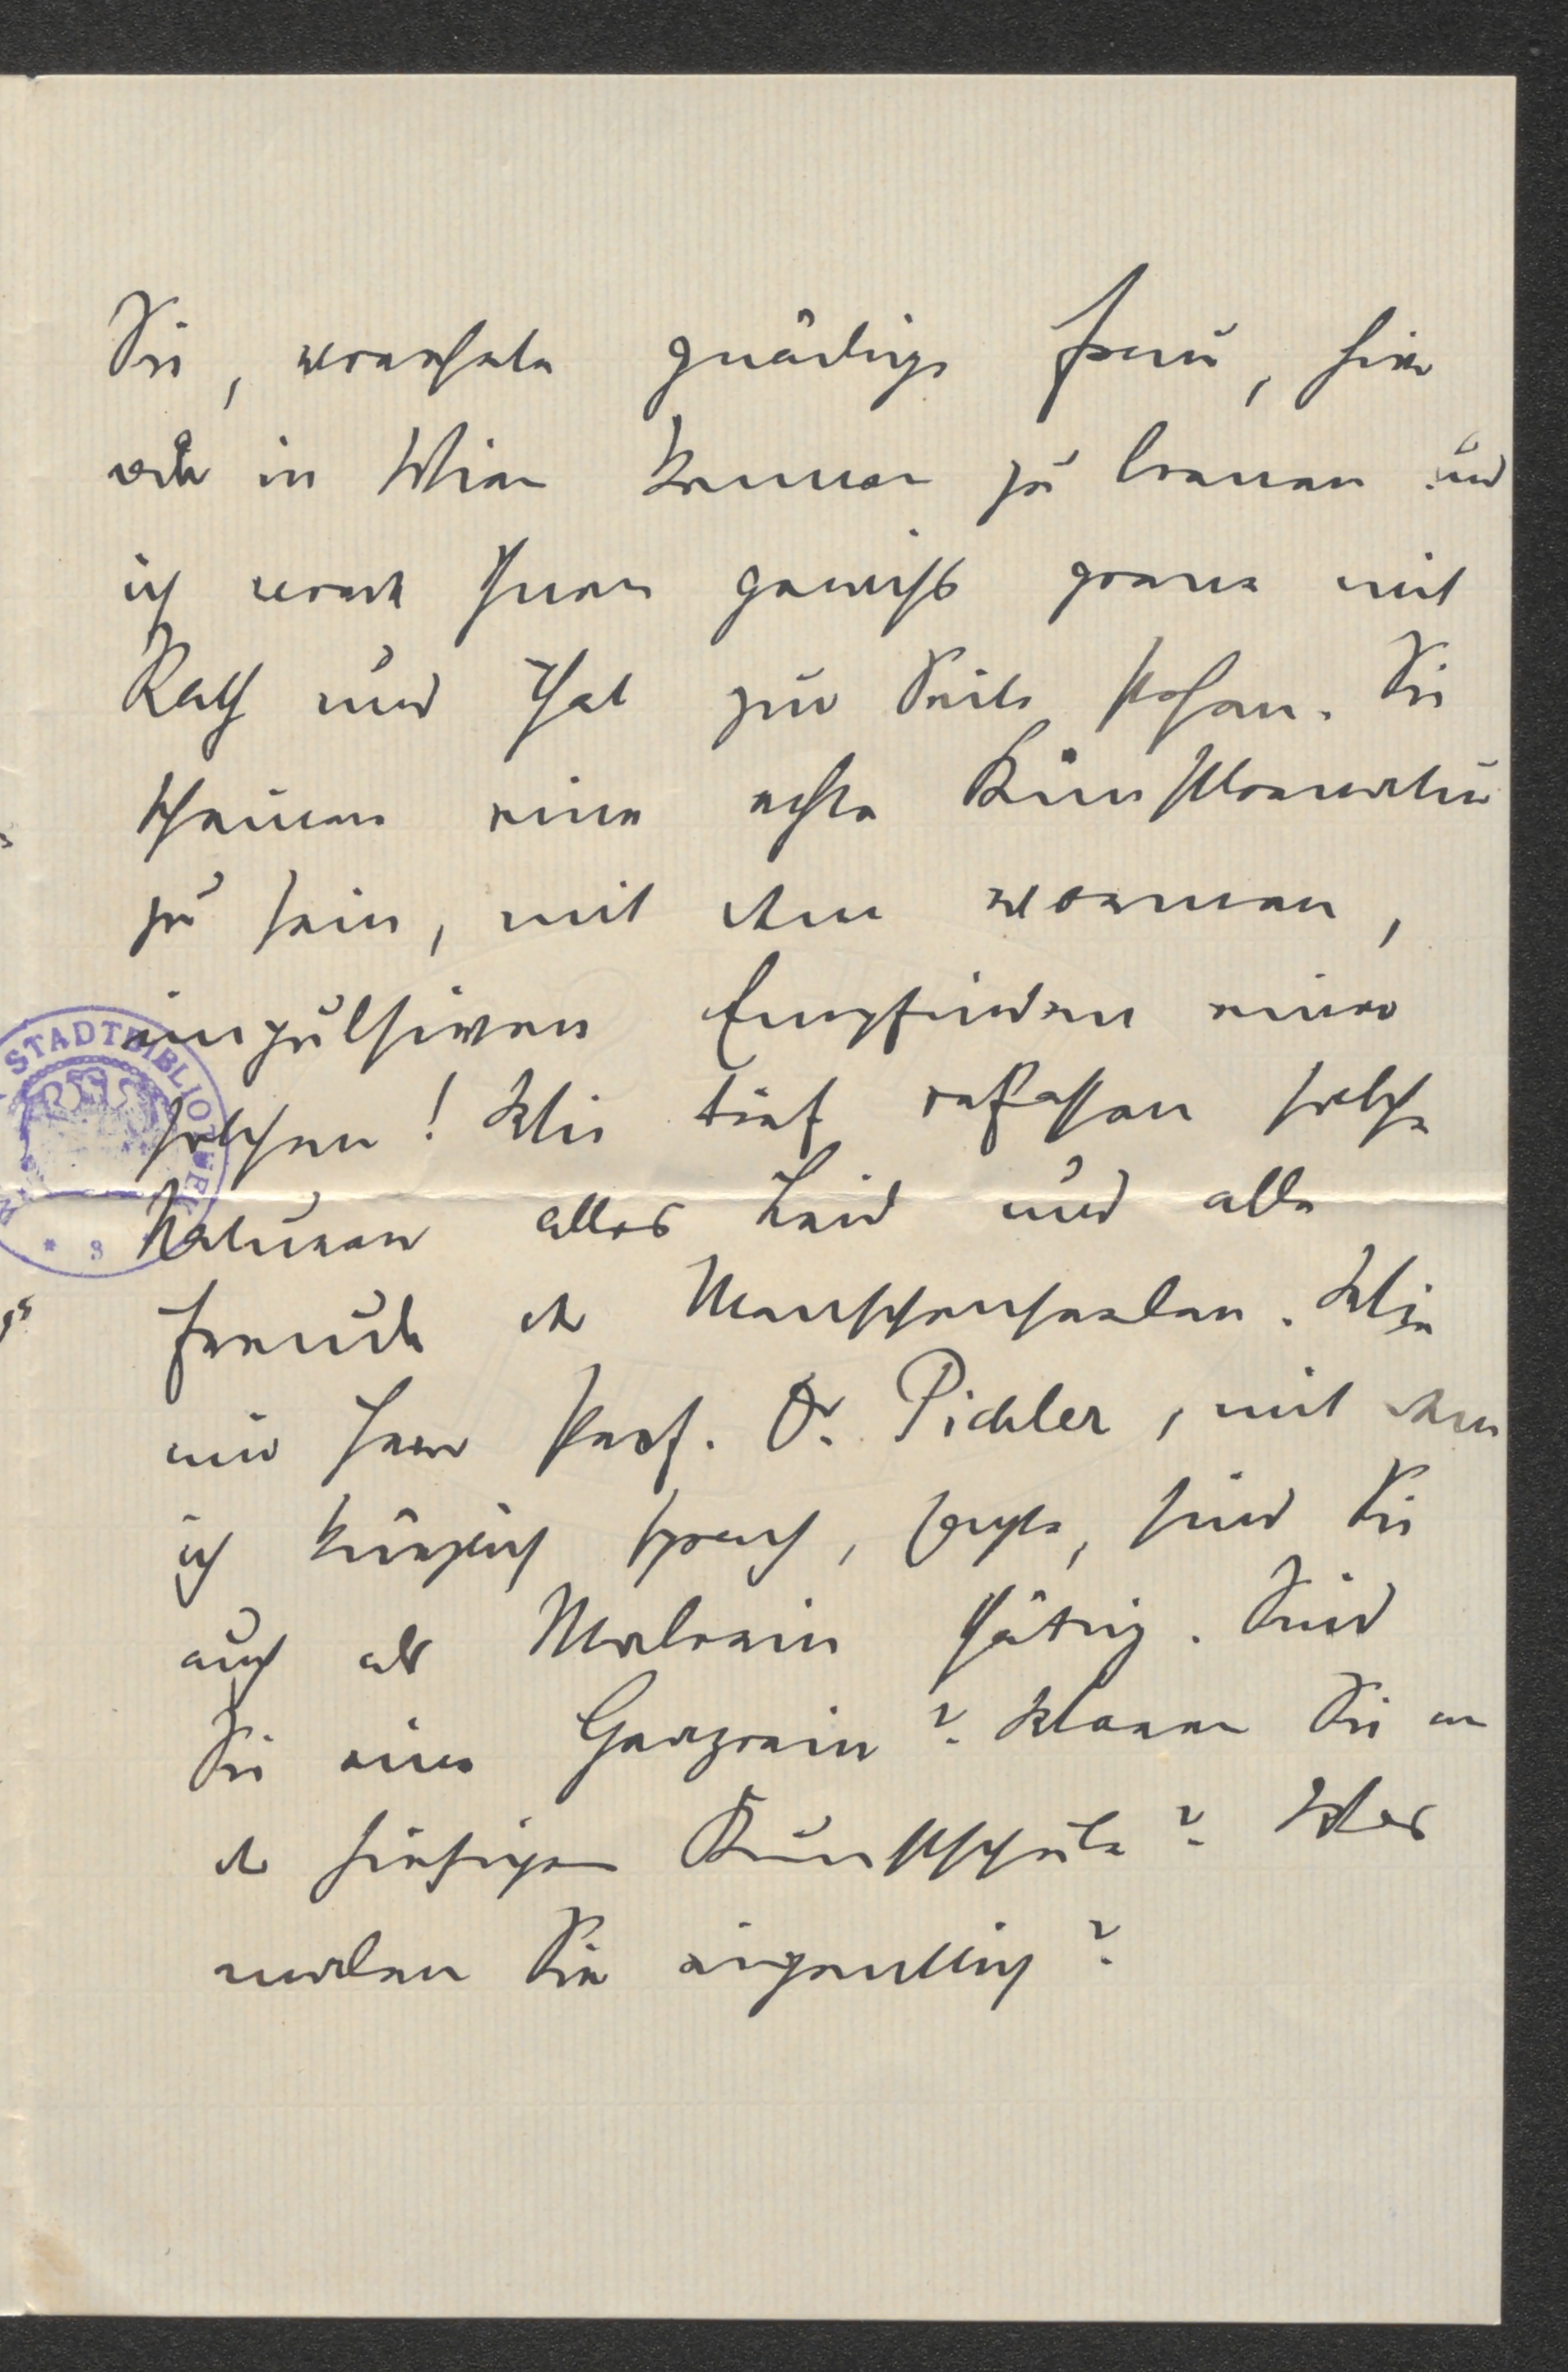 Sie, verehrte gnädige Frau, hier
oder in Wien kennen zu lernen und
ich werde Ihnen gewiß gerne mit
Rath und That zur Seite stehen. Sie
scheinen eine echte Künstlernatur
zu sein, mit dem warmen,
impulsiven Empfinden einer
solchen! Wie tief erfassen solche
Naturen alles Leid und alle
Freude der Menschenseelen. Wie
mir Herr Prof. Dr. Pichler, mit dem
ich kürzlich sprach, sagte, sind Sie
auch als Malerin thätig. Sind
Sie eine Grazerin? Waren Sie an
der hiesigen Kunstschule? Was
malen Sie eigentlich?
STADTBIBLIOTHEK